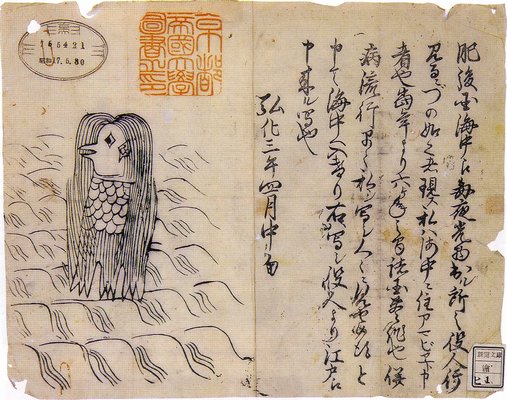 肥後国海中え毎夜光物出ル所之役人行
見るニづの如く者現ス私ハ海中ニ住アマビヱト申
者也當年より六ヶ年之間諸国豊作也併
病流行早々私シ写シ人々ニ見せ候得と
申て海中へ入けり右写シ役人より江戸え
申来ル写也
弘化三年四月中旬
京都
帝國大學
圖書之印
165421
昭和17.6.30
新聞文庫